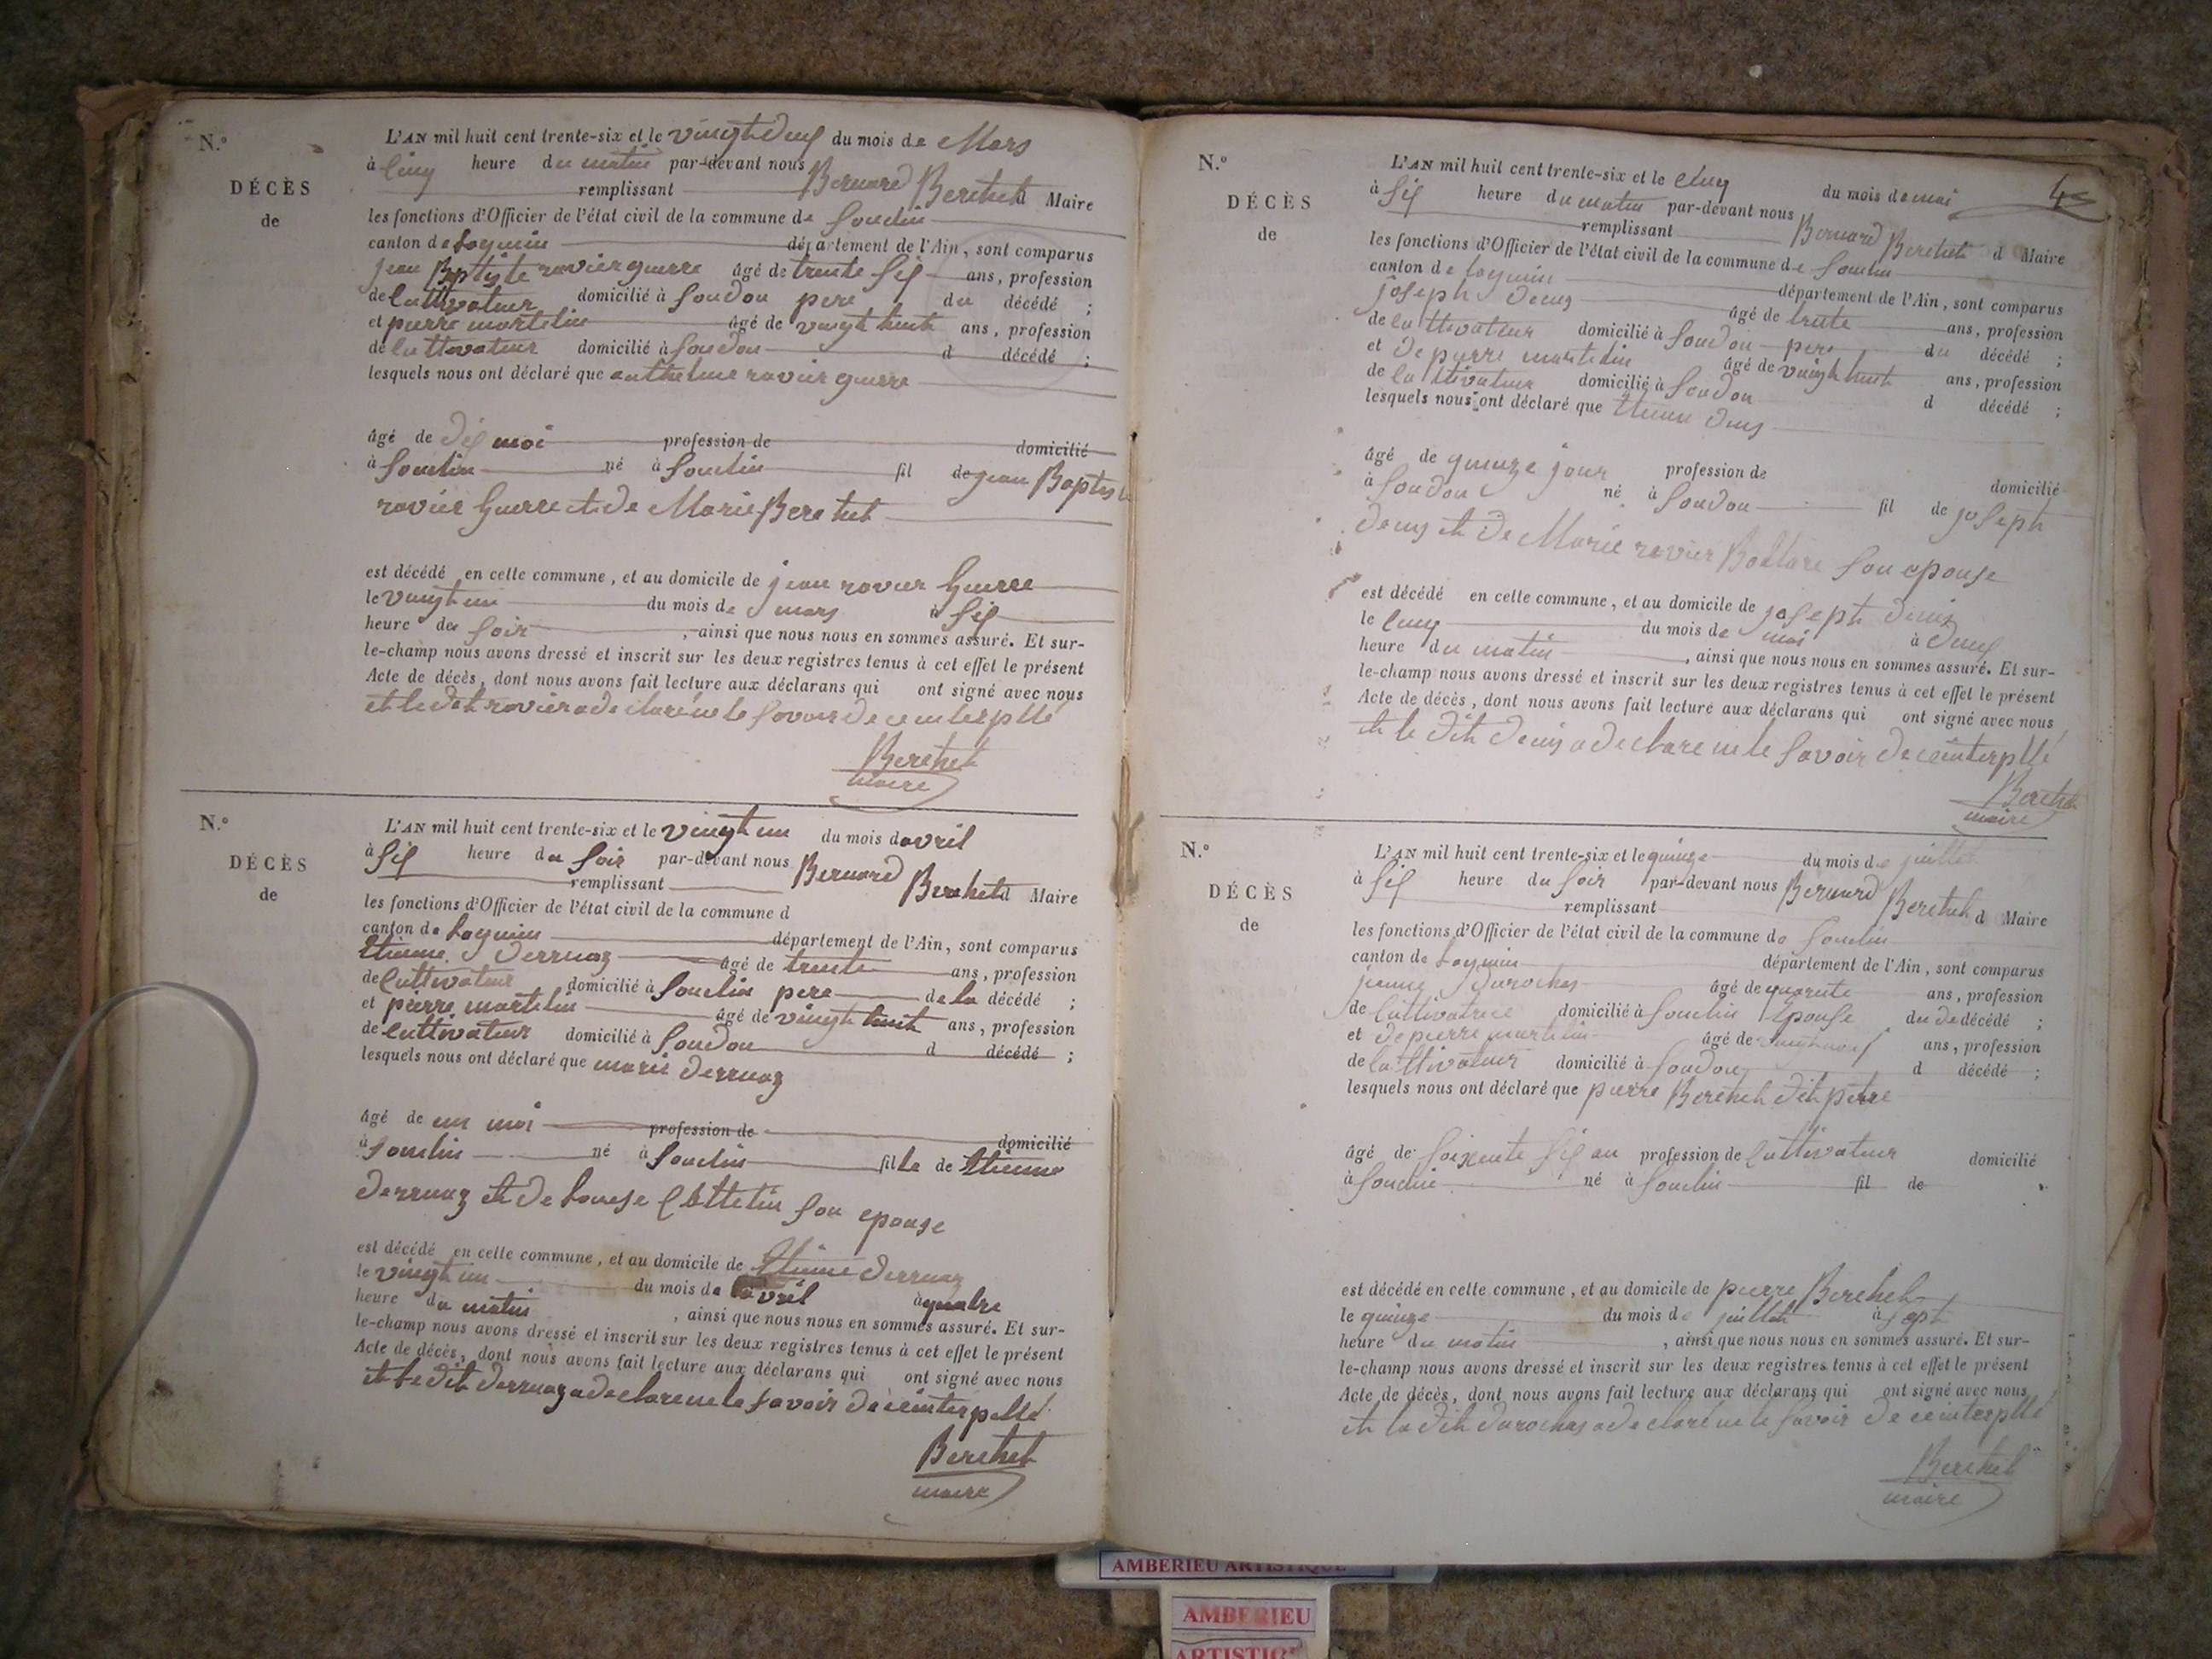 N.º
DÉCÈS
de
L'AN mil huit cent trente-six et le vingt deux du mois de Mars
à cinq heure du matin par-devant nous Bernard Berthet d Maire
remplissant
les fonctions d'Officier de l'état civil de la commune de Souclin
canton de Lagnieu département de l'Ain, sont comparus
jean Baptiste ravier guerre âgé de trente six ans, profession
de cultivateur domicilié à Soudon pere du décédé ;
et pierre martelin âgé de vingt huit ans, profession
de cultivateur domicilié à Soudon d décédé ;
lesquels nous ont déclaré que anthelme ravier guerre
âgé de dix moi profession de domicilié
à Souclin né à Souclin fil de jean Baptiste
ravier Guerre et de Marie Berthet
est décédé en cette commune, et au domicile de jean ravier Guerre
le vingt un du mois de mars à six
heure du soir , ainsi que nous nous en sommes assuré. Et sur-
le-champ nous avons dressé et inscrit sur les deux registres tenus à cet effet le présent
Acte de décès, dont nous avons fait lecture aux déclarans qui ont signé avec nous
et le dit ravier a declaré ne le savoir de ce interpllé
Berthet
maire
N.º
DÉCÈS
de
L'AN mil huit cent trente-six et le vingt un du mois d avril
à six heure du soir par-devant nous Bernard Berthet d Maire
remplissant
les fonctions d'Officier de l'état civil de la commune d
canton de Lagnieu département de l'Ain, sont comparus
Etienne Derruaz âgé de trente ans, profession
de cultivateur domicilié à Souclin pere de la décédé ;
et pierre martelin âgé de vingt huit ans, profession
de cultivateur domicilié à Soudon d décédé ;
lesquels nous ont déclaré que marie Derruaz
âgé de un moi profession de domicilié
à Souclin né à Souclin fille de Etienne
Derruaz et de Louise son epouse
est décédé en cette commune, et au domicile de Etienne Derruaz
le vingt un du mois de avril à quatre
heure du matin , ainsi que nous nous en sommes assuré. Et sur-
le-champ nous avons dressé et inscrit sur les deux registres tenus à cet effet le présent
Acte de décès, dont nous avons fait lecture aux déclarans qui ont signé avec nous
et le dit Derruaz a declare ne le savoir de ce interpellé
Berthet
maire
N.º
DÉCÈS
de
L'AN mil huit cent trente-six et le cinq du mois de mai
à six heure du matin par-devant nous Bernard Berthet d Maire
remplissant
les fonctions d'Officier de l'état civil de la commune de Souclin
canton de Lagnieu département de l'Ain, sont comparus
joseph Denis âgé de trente ans, profession
de cultivateur domicilié à Soudon pere du décédé ;
et de pierre martelin âgé de vingt huit ans, profession
de cultivateur domicilié à Soudon d décédé ;
lesquels nous ont déclaré que Etienne Denis
âgé de quinze jour profession de domicilié
à Soudon né à Soudon fil de joseph
Denis et de Marie ravier son epouse
est décédé en cette commune, et au domicile de joseph Denis
le cinq du mois de mai à deux
heure du matin , ainsi que nous nous en sommes assuré. Et sur-
le-champ nous avons dressé et inscrit sur les deux registres tenus à cet effet le présent
Acte de décès, dont nous avons fait lecture aux déclarans qui ont signé avec nous
et le dit Denis a declare ne le savoir de ce interpllé
Berthet
maire
N.º
DÉCÈS
de
L'AN mil huit cent trente-six et le quinze du mois de juillet
à six heure du soir par-devant nous Bernard Berthet d Maire
remplissant
les fonctions d'Officier de l'état civil de la commune de Souclin
canton de Lagnieu département de l'Ain, sont comparus
Durochas âgé de quarente ans, profession
de cultivatrice domicilié à Souclin Epouse du dedécédé ;
et de pierre martelin âgé de ans, profession
de cultivateur domicilié à Soudon d décédé ;
lesquels nous ont déclaré que pierre Berthet dit
âgé de soixente six an profession de cultivateur domicilié
à Souclin né à Souclin fil de
est décédé en cette commune, et au domicile de pierre Berthet
le quinze du mois de juillet à sept
heure du matin , ainsi que nous nous en sommes assuré. Et sur-
le-champ nous avons dressé et inscrit sur les deux registres tenus à cet effet le présent
Acte de décès, dont nous avons fait lecture aux déclarans qui ont signé avec nous
et la dit Durochas a declaré ne le savoir de ce interpllé
Berthet
maire
AMBERIEU ARTISTIQUE
AMBERIEU
ARTISTIQUE